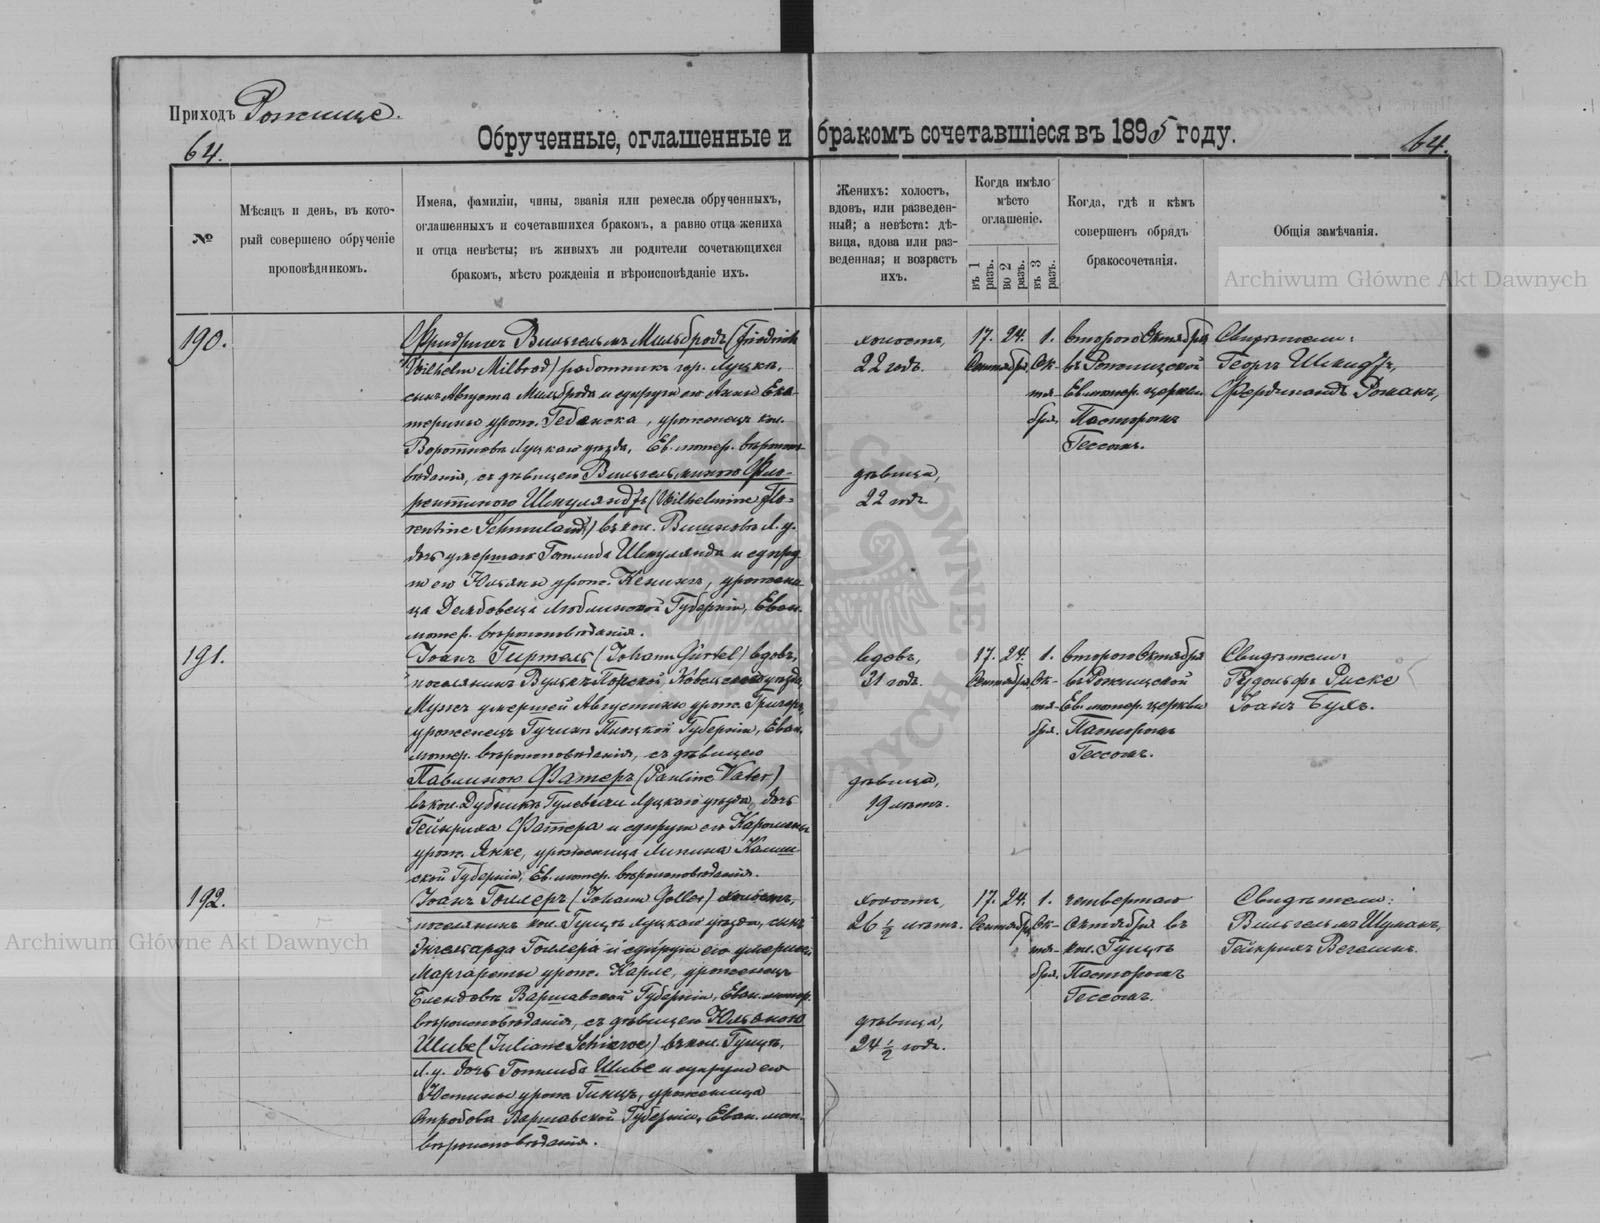 Приходъ Рожище.
64.
Обрученные, оглашенные и бракомъ сочетавшіеся въ 1895 году.
64.
№
Мѣсяцъ и день, въ кото-
рый совершено обрученіе
проповѣдникомъ.
Имена, фамиліи, чины, званія или ремесла обрученныхъ,
оглашенныхъ и сочетавшихся бракомъ, а равно отца жениха
и отца невѣсты; въ живыхъ ли родители сочетающихся
бракомъ, мѣсто рожденія и вѣроисповѣданіе ихъ.
Женихъ: холостъ,
вдовъ, или разведен-
ный; а невѣста: дѣ-
вица, вдова или раз-
веденная; и возрастъ
ихъ.
Когда имѣло
мѣсто
оглашеніе.
въ 1 разъ.
во 2 разъ.
въ 3 разъ.
Когда, гдѣ и кѣмъ
совершенъ обрядъ
бракосочетанія.
Общія замѣчанія.
190.
Фридрихъ Вильгельмъ Мильбродъ (Friedrich
Wilhelm Milbrod) работникъ гор. Луцка,
сынъ Августа Мильброда и супруги его Анны Ека-
терины урож. , уроженецъ кол.
Луцкаго уѣзда, Ев. лютер. вѣроиспо-
вѣданія, съ дѣвицею Вильгельминою Фло-
рентиною Шмуляндъ (Wilhelmine Flo-
rentine Schmuland) въ кол. Л. у.
дочь умершаго Готлиба Шмулянда и супру-
ги его Юльяны урож. , урожени-
ца Люблинской Губерніи, Еван.
лютер. вѣроисповѣданія.
холостъ,
22 годъ.
дѣвица,
22 годъ
17. 24. 1.
Сентября, Ок-
тя-
бря.
второго Октября
въ Рожищской
Ев. лютер. церкви
Пасторомъ
Гессомъ.
Свидѣтели:
Георгъ Шмидъ,
Фердинандъ Роман,
191.
Іоанъ Гиртель (Johann Gürtel) вдовъ,
поселянинъ Ковельскаго уѣзда,
Мужъ умершей Августины урож. ,
уроженецъ Плоцкой Губерніи, Еван.
лютер. вѣроисповѣданія, съ дѣвицею
Павлиною Фатеръ (Pauline Vater)
въ кол. Луцкаго уѣзда, дочь
Гейнриха Фатера и супруги его Каролины
урож. Янке, уроженица Калиш-
ской Губерніи, Ев. лютер. вѣроисповѣданія.
вдовъ,
31 годъ.
дѣвица,
19 лѣтъ.
17. 24. 1.
Сентября, Ок-
тя-
бря.
второго Октября
въ Рожищской
Ев. лютер. церкви
Пасторомъ
Гессомъ.
Свидѣтели:
Рудольфъ Риске
Іоанъ Булъ.
192.
Іоанъ Голлеръ (Johann Goller) холостъ,
поселянинъ кол. Гущъ Луцкаго уѣзда, сынъ
Голлера и супруги его умершей
Маргареты урож. Карле, уроженецъ
Варшавской Губерніи, Еван. лютер.
вѣроисповѣданія, съ дѣвицею Юльяною
Шиве (Juliane Schiewe) въ кол. Гущъ,
Л. у. дочь Готлиба Шиве и супруги его
Юстины урож. Гинцъ, уроженица
Варшавской Губерніи, Еван. лют.
вѣроисповѣданія.
холостъ,
26 ½ лѣтъ.
дѣвица,
24 ½ годъ.
17. 24. 1.
Сентября, Ок-
тя-
бря.
четвертаго
Октября въ
кол. Гущъ
Пасторомъ
Гессомъ.
Свидѣтели:
Вильгельмъ Шуманъ,
Гейнрихъ Вегелинъ.
Archiwum Główne Akt Dawnych
Archiwum Główne Akt Dawnych